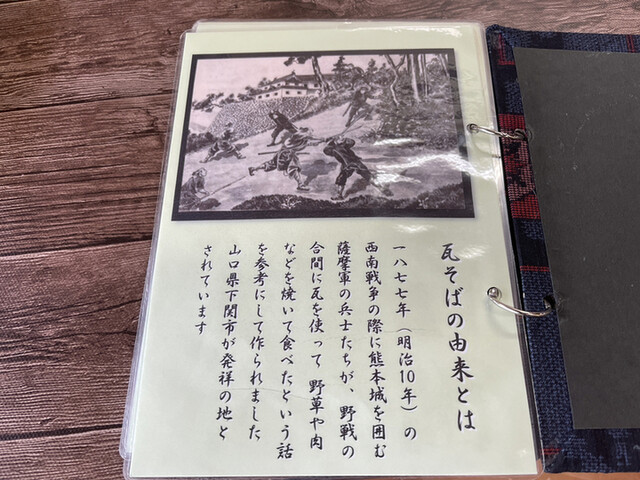 瓦そばの由来とは
一八七七年（明治10年）の
西南戦争の際に熊本城を囲む
薩摩軍の兵士たちが、野戦の
合間に瓦を使って 野草や肉
などを焼いて食べたという話
を参考にして作られました
山口県下関市が発祥の地と
されています